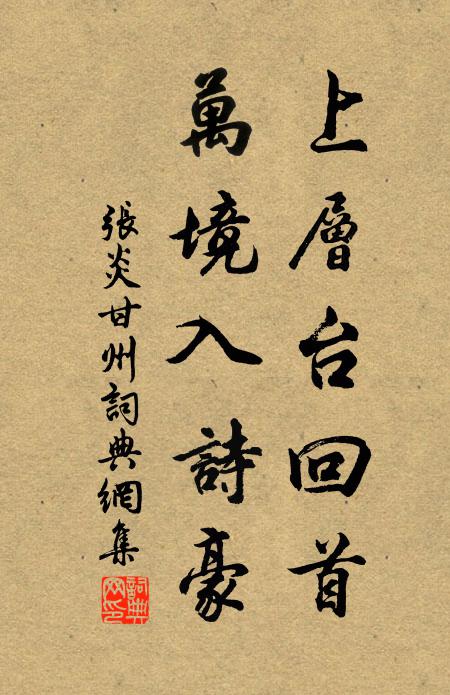 上層台回首
萬境入詩豪
張炎甘州詞典網集
詞典網印